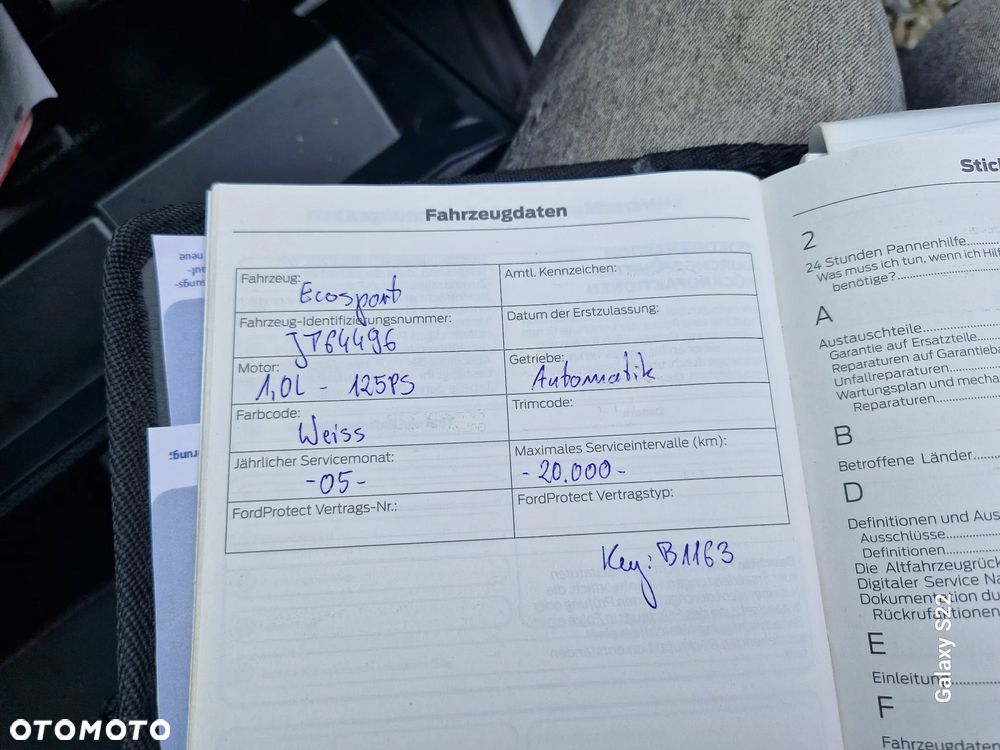 Fahrzeugdaten
Fahrzeug:
Ecosport
Amtl. Kennzeichen:
Fahrzeug-Identifizierungsnummer:
JT64496
Datum der Erstzulassung:
Motor:
1,0L - 125PS
Getriebe:
Automatik
Farbcode:
Weiss
Trimcode:
Jährlicher Servicemonat:
-05-
Maximales Serviceintervalle (km):
- 20.000 -
FordProtect Vertrags-Nr.:
FordProtect Vertragstyp:
Key: B1163
Stic
2
24 Stunden Pannenhilfe
Was muss ich tun, wenn ich Hilf
benötige?
A
Austauschteile
Garantie auf Ersatzteile
Reparaturen auf Garantieba
Unfallreparaturen
Wartungsplan und mecha
Reparaturen
B
Betroffene Länder
D
Definitionen und Aus
Ausschlüsse
Definitionen
Die Altfahrzeugrück
Digitaler Service Na
Dokumentation du
Rückrufaktionen
E
Einleitung
F
Fahrzeugdaten
Galaxy S22
OTOMOTO